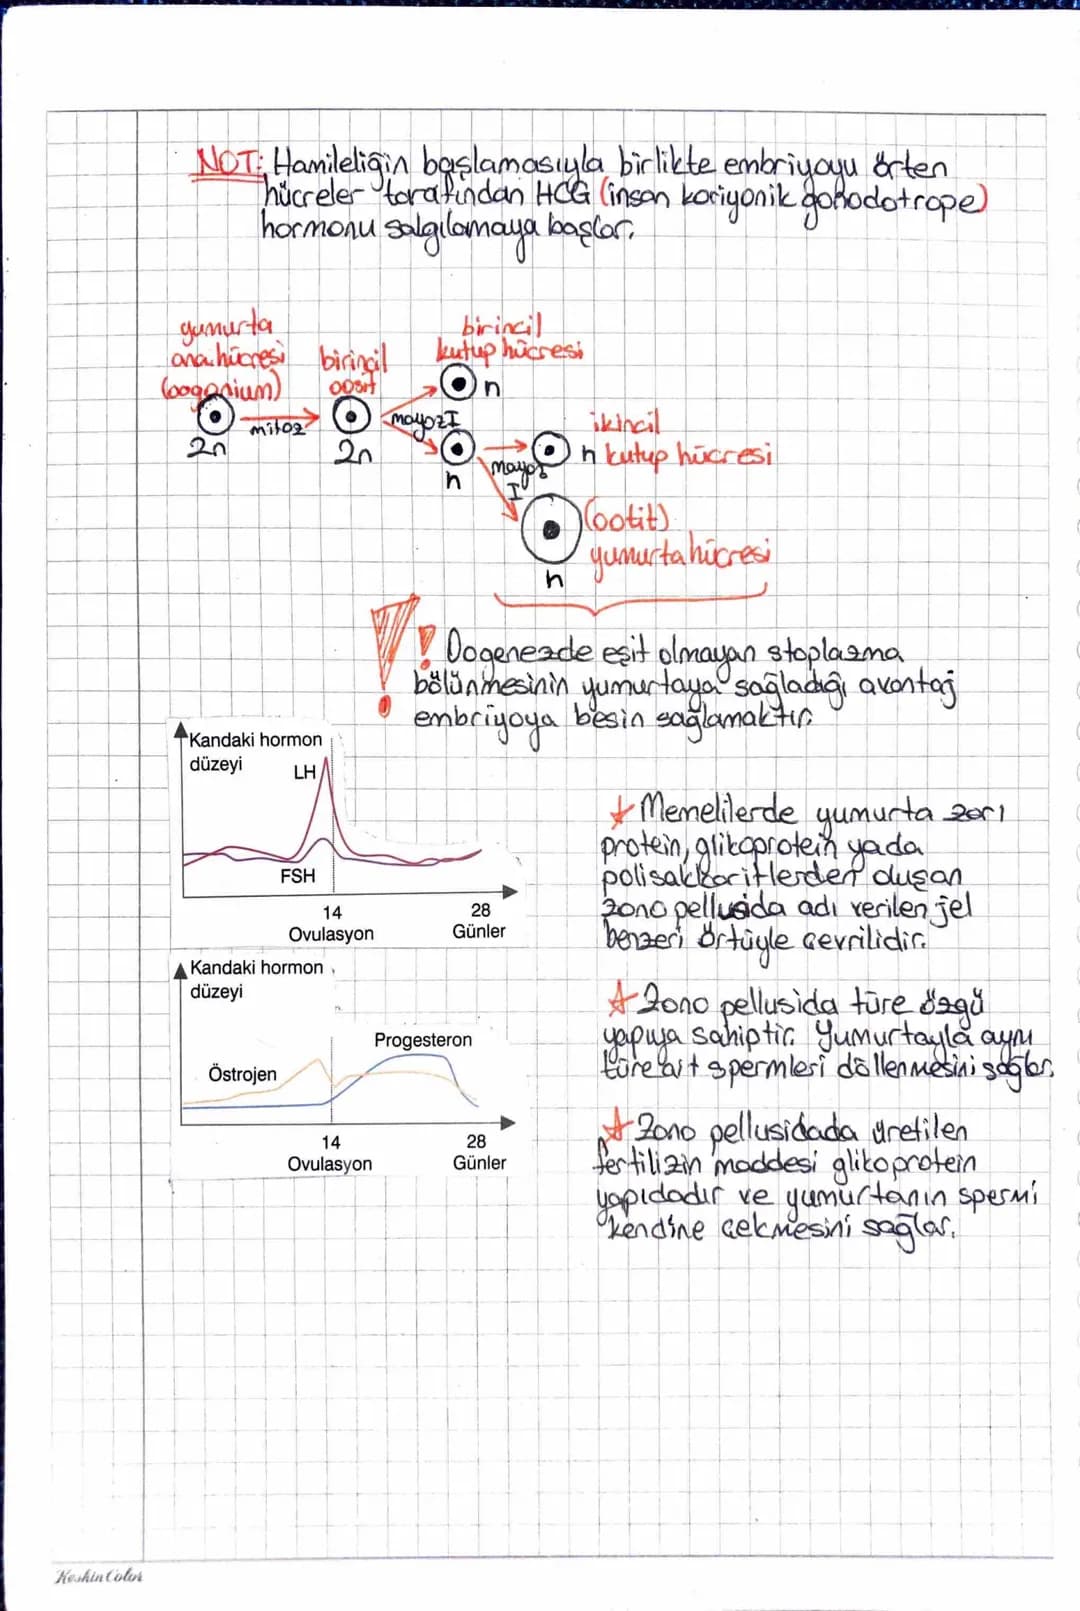 NOT: Hamileliğin başlamasıyla birlikte embriyoyu örten
hücreler tarafından HCG (insan koriyonik gonodotrope)
hormonu salgılamaya başlar.
yumurta
ana hücresi
(oogonium)
2n
mitoz
birincil
oosit
2n
mayoz I
birincil
kutup hücresi
n
n
mayoz
I
ikincil
n kutup hücresi
(ootit)
yumurta hücresi
n
! ! Oogenezde eşit olmayan stoplazma
bölünmesinin yumurtaya sağladığı avantaj
embriyoya besin sağlamaktır.
Kandaki hormon
düzeyi
LH
FSH
14
Ovulasyon
28
Günler
Kandaki hormon
düzeyi
Progesteron
Östrojen
14
Ovulasyon
28
Günler
☆ Memelilerde yumurta zarı
protein, glikoprotein yada
polisakkaritlerden oluşan
zona pellusida adı verilen jel
benzeri örtüyle çevrilidir.
☆ Zona pellusida türe özgü
yapıya sahiptir. Yumurtayla aynı
türe ait spermleri döllenmesini sağlar.
☆ Zona pellusidada üretilen
fertilizin maddesi glikoprotein
yapıdadır ve yumurtanın spermi
kendine çekmesini sağlar.
Keskin Color